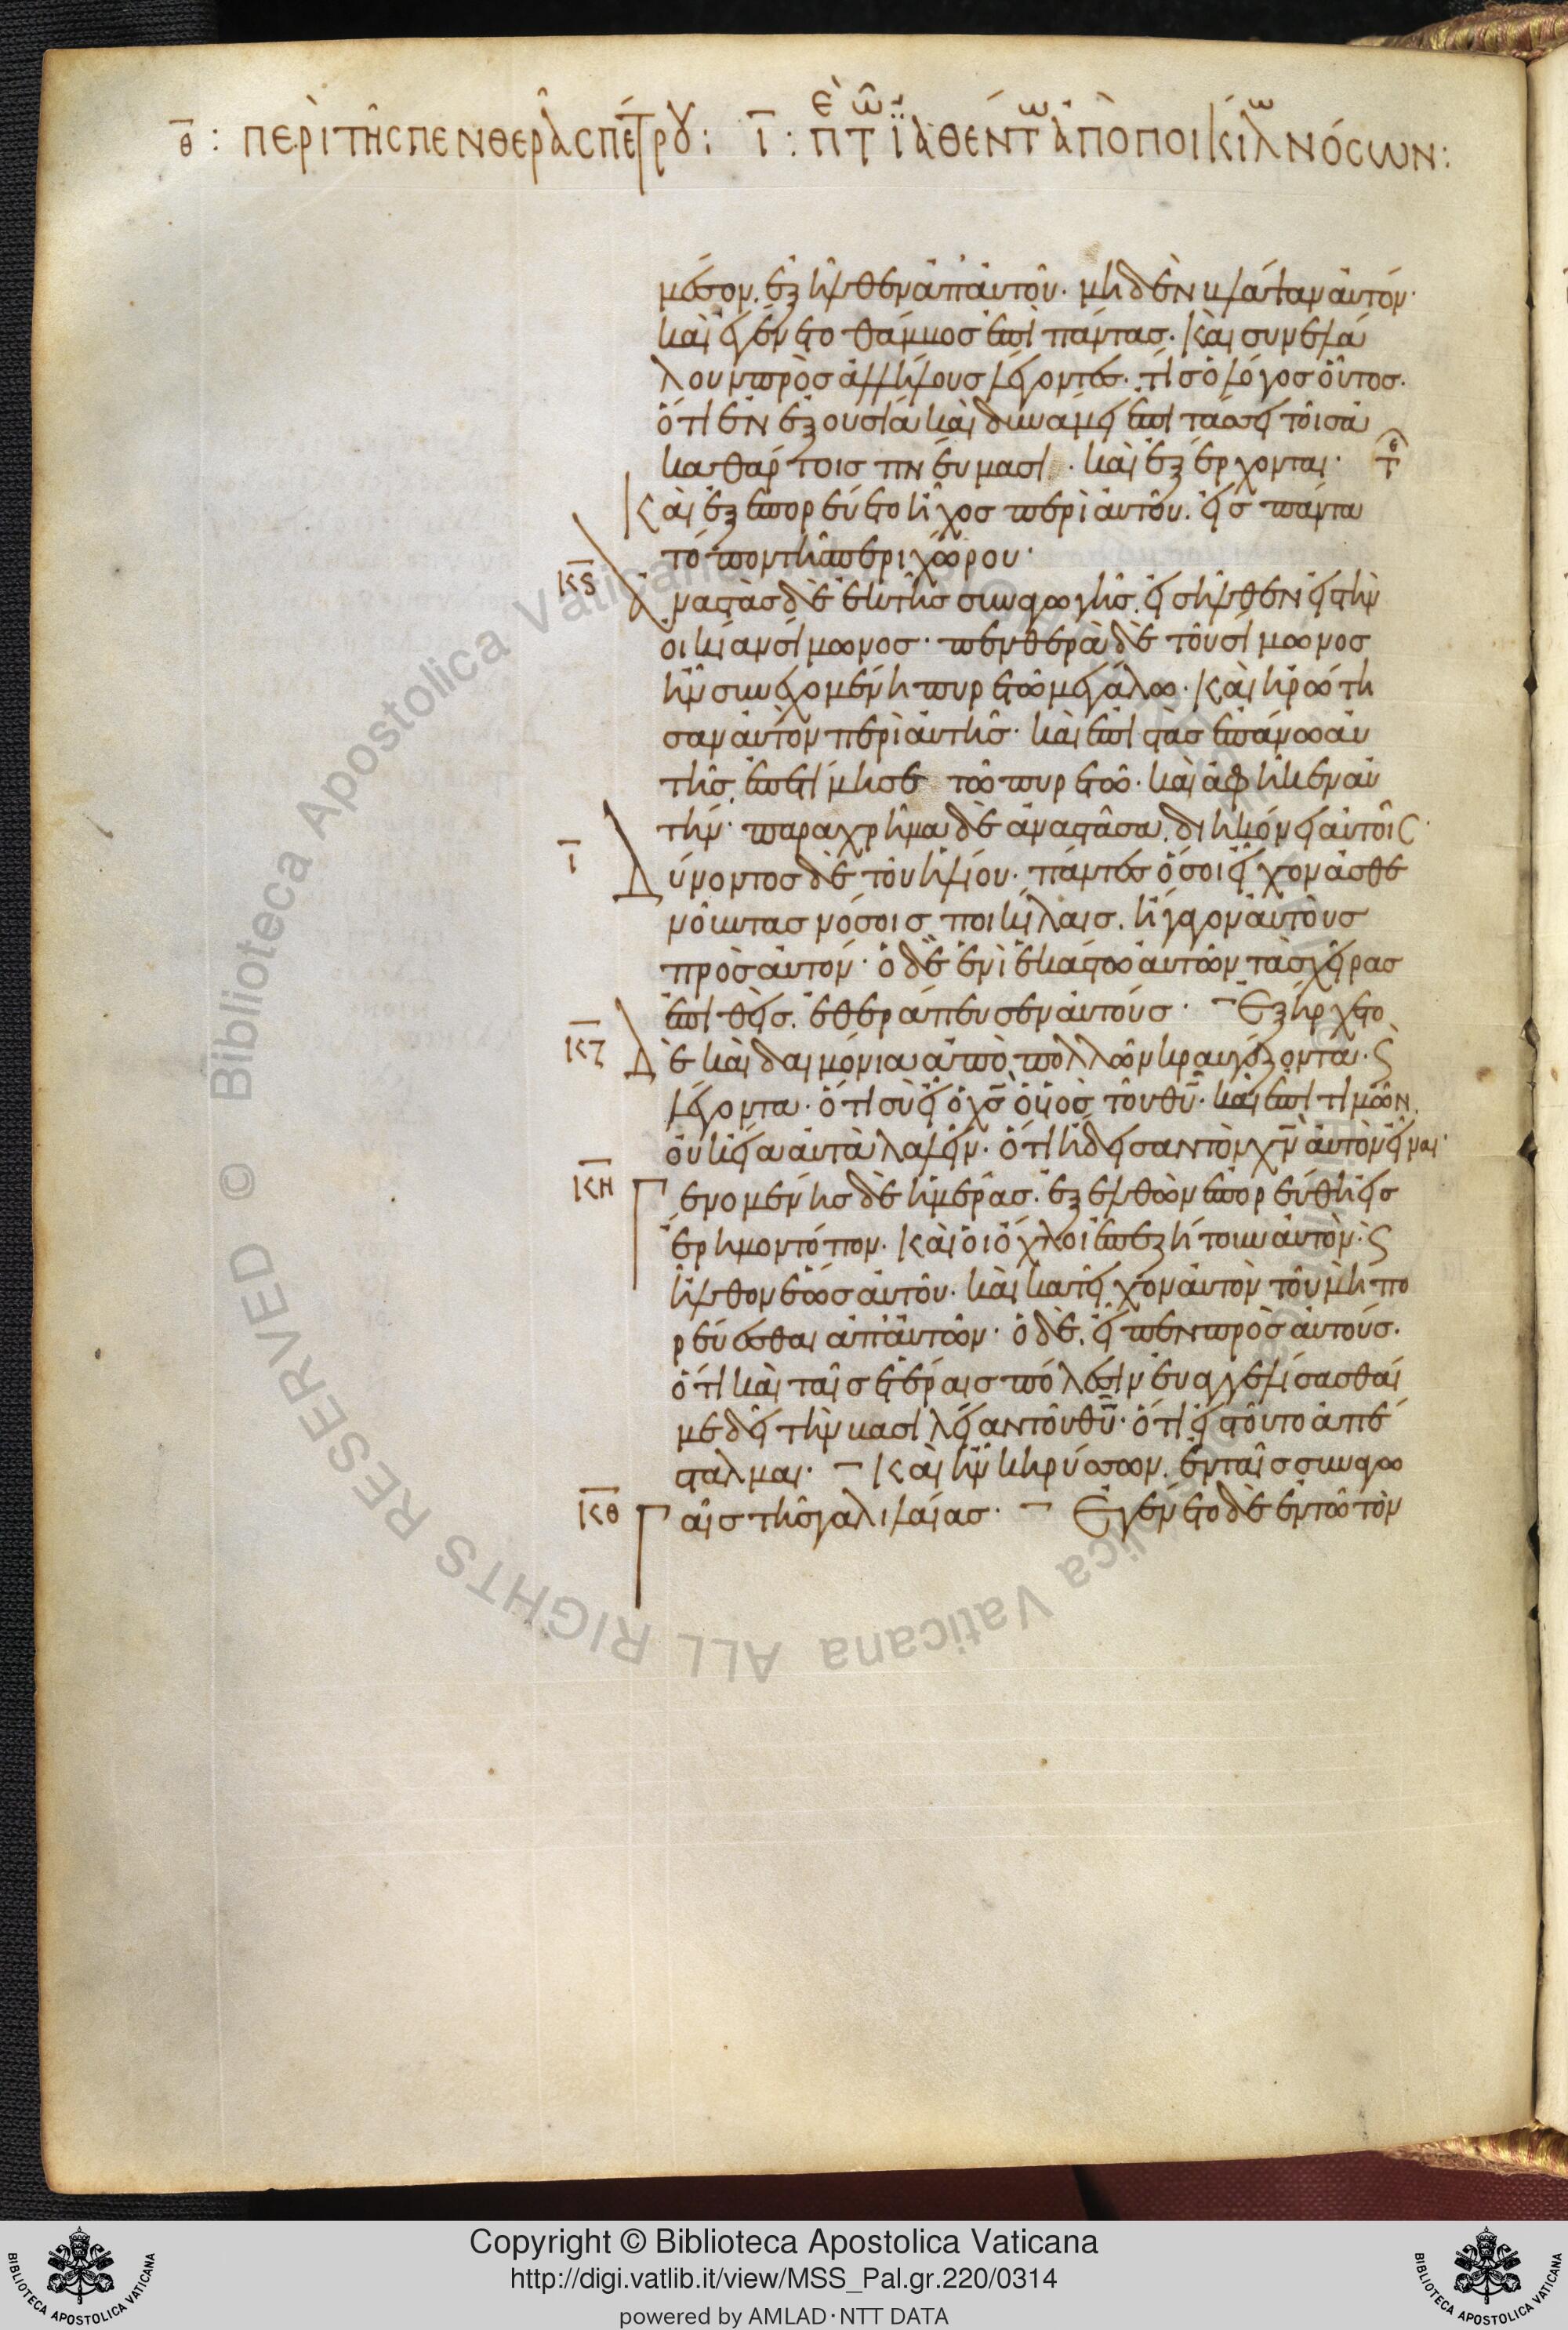 θ̅: περὶ τῆς πενθερᾶς πέτρου: ι̅: πε τῶ ἰαθέντω ἀπὸ ποικίλω νόσων:
μέσον. ἐξῆλθεν ἀπ' αὐτοῦ· μηδὲν βλάψαν αὐτόν·
καὶ ἐγένετο θάμβος ἐπὶ πάντας· καὶ συνελά
λουν πρὸς ἀλλήλους λέγοντες· τίς ὁ λόγος οὗτος·
ὅτι ἐν ἐξουσία καὶ δυνάμει ἐπιτάσσει τοῖς ἀ
καθάρτοις πνεύμασι· καὶ ἐξέρχονται·
καὶ ἐξεπορεύετο ἦχος περὶ αὐτοῦ. εἰς πάντα
τόπον τῆς περιχώρου·
κς̅
ἀναστὰς δὲ ἐκ τῆς συναγωγῆς. εἰσῆλθεν εἰς τὴν
οικίαν σίμωνος· πενθερὰ δὲ τοῦ σίμωνος
ἦν συνεχομένη πυρετῶ μεγάλω· καὶ ἠρώτη
σαν αὐτὸν περὶ αὐτῆς· καὶ ἐπιστὰς ἐπάνω αὐ
τῆς. ἐπετίμησε τῶ πυρετῶ· καὶ ἀφῆκεν αὐ
τήν· παραχρῆμα δὲ ἀναστᾶσα. διηκόνει αὐτοῖς·
ι̅
Δύνοντος δὲ τοῦ ἡλίου· πάντες ὅσοι εἶχον ἀσθε
νοῦντας νόσοις ποικίλαις. ἤγαγον αὐτοὺς
πρὸς αὐτόν· ὁ δὲ ἑνὶ ἑκάστω αὐτῶν τὰς χεῖρας
ἐπιθεὶς. ἐθεράπευσεν αὐτούς· Ἐξήρχετο
κζ̅
Δὲ καὶ δαιμόνια ἀπὸ πολλῶν κραυγάζοντα· ϛ
λέγοντα· ὅτι σὺ εἶ ὁ χς̅ ὁ υἱὸς τοῦ θυ̅· καὶ ἐπιτιμῶν.
οὐκ εἴα αὐτὰ λαλεῖν· ὅτι ἤδεισαν τὸν χν̅ αὐτὸν εἶναι·
κη̅
Γενομένης δὲ ἡμέρας. ἐξελθὼν ἐπορεύθη εἰς
ἔρημον τόπον. καὶ οἱ ὄχλοι ἐπεζήτουν αὐτόν· ϛ
ἦλθον ἕως αὐτοῦ· καὶ κατεῖχον αὐτὸν τοῦ μὴ πο
ρεύεσθαι ἀπ' αὐτῶν· ὁ δὲ. εἶπεν πρὸς αὐτούς·
ὅτι καὶ ταῖς ἑτέραις πόλεσιν εὐαγγελίσασθαί
με δεῖ τὴν βασιλείαν τοῦ θυ̅· ὅτι εἰς τοῦτο ἀπέ
σταλμαι· Καὶ ἦν κηρύσσων. ἐν ταῖς συναγω
κθ̅
Γαῖς τῆς γαλιλαίας· Ἐγένετο δὲ ἐν τῶ τὸν
Copyright © Biblioteca Apostolica Vaticana
http://digi.vatlib.it/view/MSS_Pal.gr.220/0314
powered by AMLAD·NTT DATA